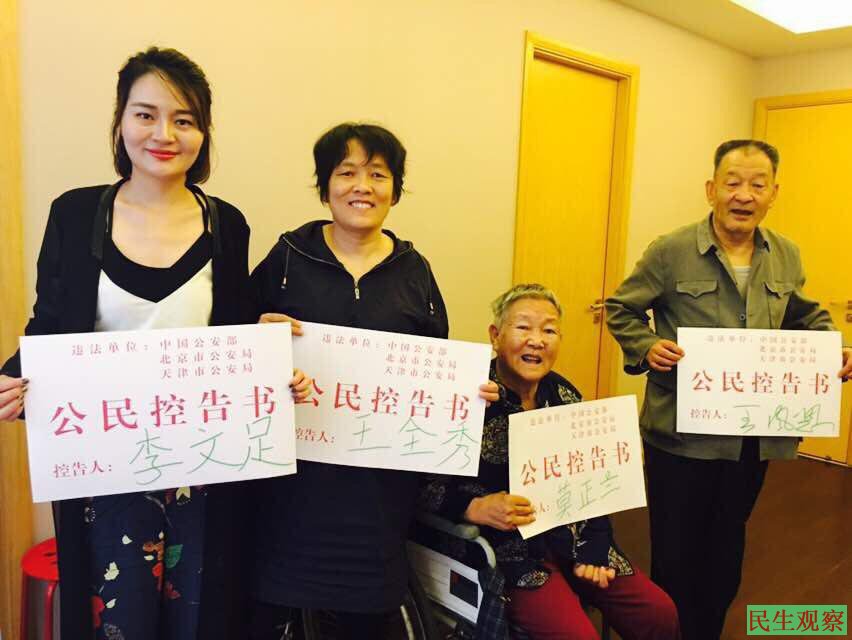 违法单位：中国公安部
北京市公安局
天津市公安局
公民控告书
控告人：李文足
违法单位：中国公安部
北京市公安局
天津市公安局
公民控告书
控告人：王全秀
违法单位：中国公安部
北京市公安局
天津市公安局
公民控告书
告人：莫正兰
违法单位：中国公安部
北京市公安局
天津市公安局
公民控告书
控告人：王
民生观察